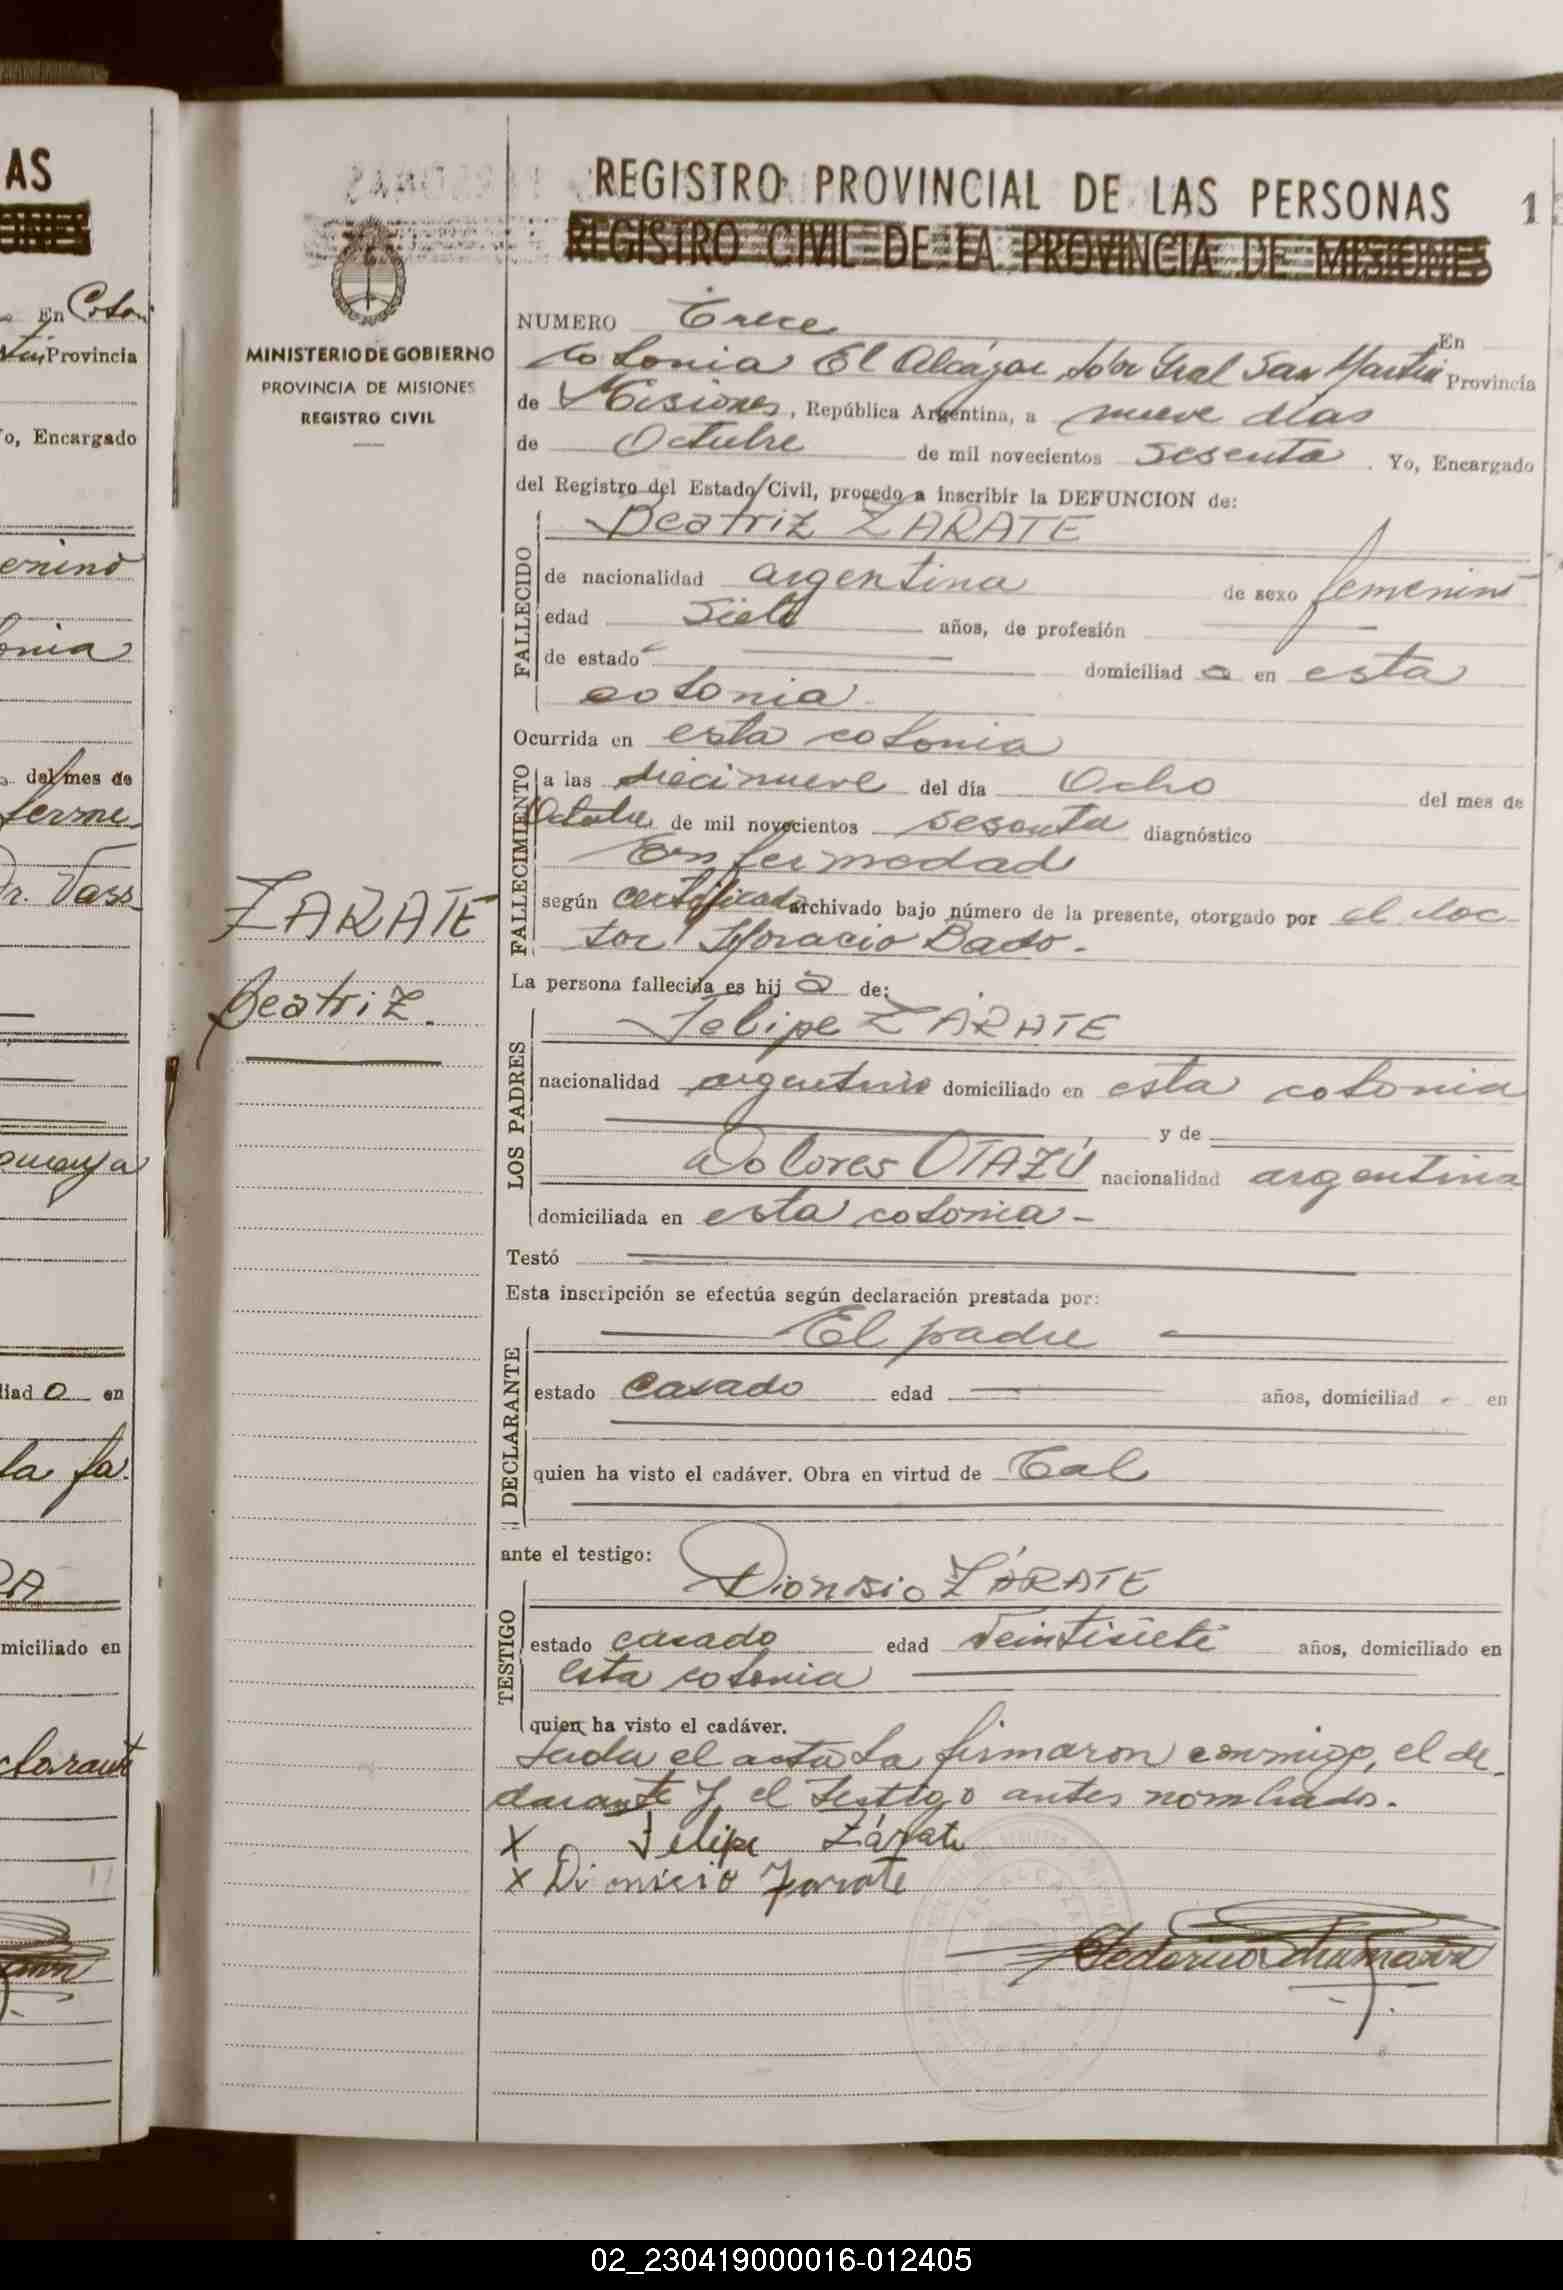 AS
En Colon
tín Provincia
Yo, Encargado
enino
onia
del mes de
ferme-
Dr. Vass-
liad o en
la fa-
RA
miciliado en
clarante
MINISTERIO DE GOBIERNO
PROVINCIA DE MISIONES
REGISTRO CIVIL
ZARATE
Beatriz.
REGISTRO PROVINCIAL DE LAS PERSONAS 1
REGISTRO CIVIL DE LA PROVINCIA DE MISIONES
NUMERO Trece En
colonia El Alcázar Gral San Martín Provincia
de Misiones, República Argentina, a nueve días
de Octubre de mil novecientos sesenta. Yo, Encargado
del Registro del Estado Civil, procedo a inscribir la DEFUNCION de:
Beatriz ZARATE
FALLECIDO
de nacionalidad argentina de sexo femenino
edad Siete años, de profesión
de estado domiciliad a en esta
colonia
Ocurrida en esta colonia
FALLECIMIENTO
a las diecinueve del día Ocho del mes de
Octubre de mil novecientos sesenta diagnóstico
Enfermedad
según certificado archivado bajo número de la presente, otorgado por el doc-
tor Horacio Bado.-
La persona fallecida es hij a de:
Felipe ZÁRATE
LOS PADRES
nacionalidad argentino domiciliado en esta colonia
y de
Dolores OTAZÚ nacionalidad argentina
domiciliada en esta colonia-
Testó
Esta inscripción se efectúa según declaración prestada por:
El padre
DECLARANTE
estado casado edad años, domiciliad en
quien ha visto el cadáver. Obra en virtud de Tal
ante el testigo:
Dionisio ZÁRATE
TESTIGO
estado casado edad veintisiete años, domiciliado en
esta colonia
quien ha visto el cadáver.
Leida el acta la firmaron conmigo, el de-
clarante y el testigo antes nombrado.
X Felipe Zárate
X Dionicio Zarate
02_230419000016-012405